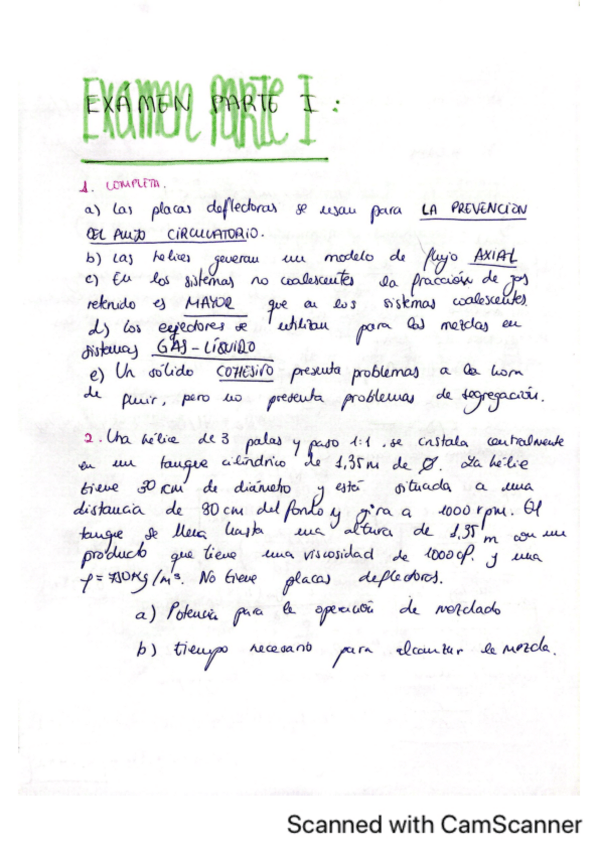 EXÁMEN PARTE I :
1. COMPLETA.
a) Las placas deflectoras se usan para LA PREVENCION
DEL FLUJO CIRCULATORIO.
b) Las helices generan un modelo de flujo AXIAL
c) En los sistemas no coalescentes la fracción de gas
retenido es MAYOR que en los sistemas coalescentes.
d) Los eyectores se utilizan para las mezclas en
sistemas GAS-LÍQUIDO
e) Un sólido COHESIVO presenta problemas a la hora
de fluir, pero no presenta problemas de segregación.
2. Una hélice de 3 palas y paso 1:1 se instala centralmente
en un tanque cilíndrico de 1,35m de Ø. La hélie
tiene 30 cm de diámetro y está situada a una
distancia de 30 cm del fondo y gira a 1000 rpm. El
tanque se llena hasta una altura de 1,35 m con un
producto que tiene una viscosidad de 1000 cP. y una
ρ= 710 Kg/m³. No tiene placas deflectoras.
a) Potencia para la operación de mezclado
b) tiempo necesario para alcanzar la mezcla.
Scanned with CamScanner